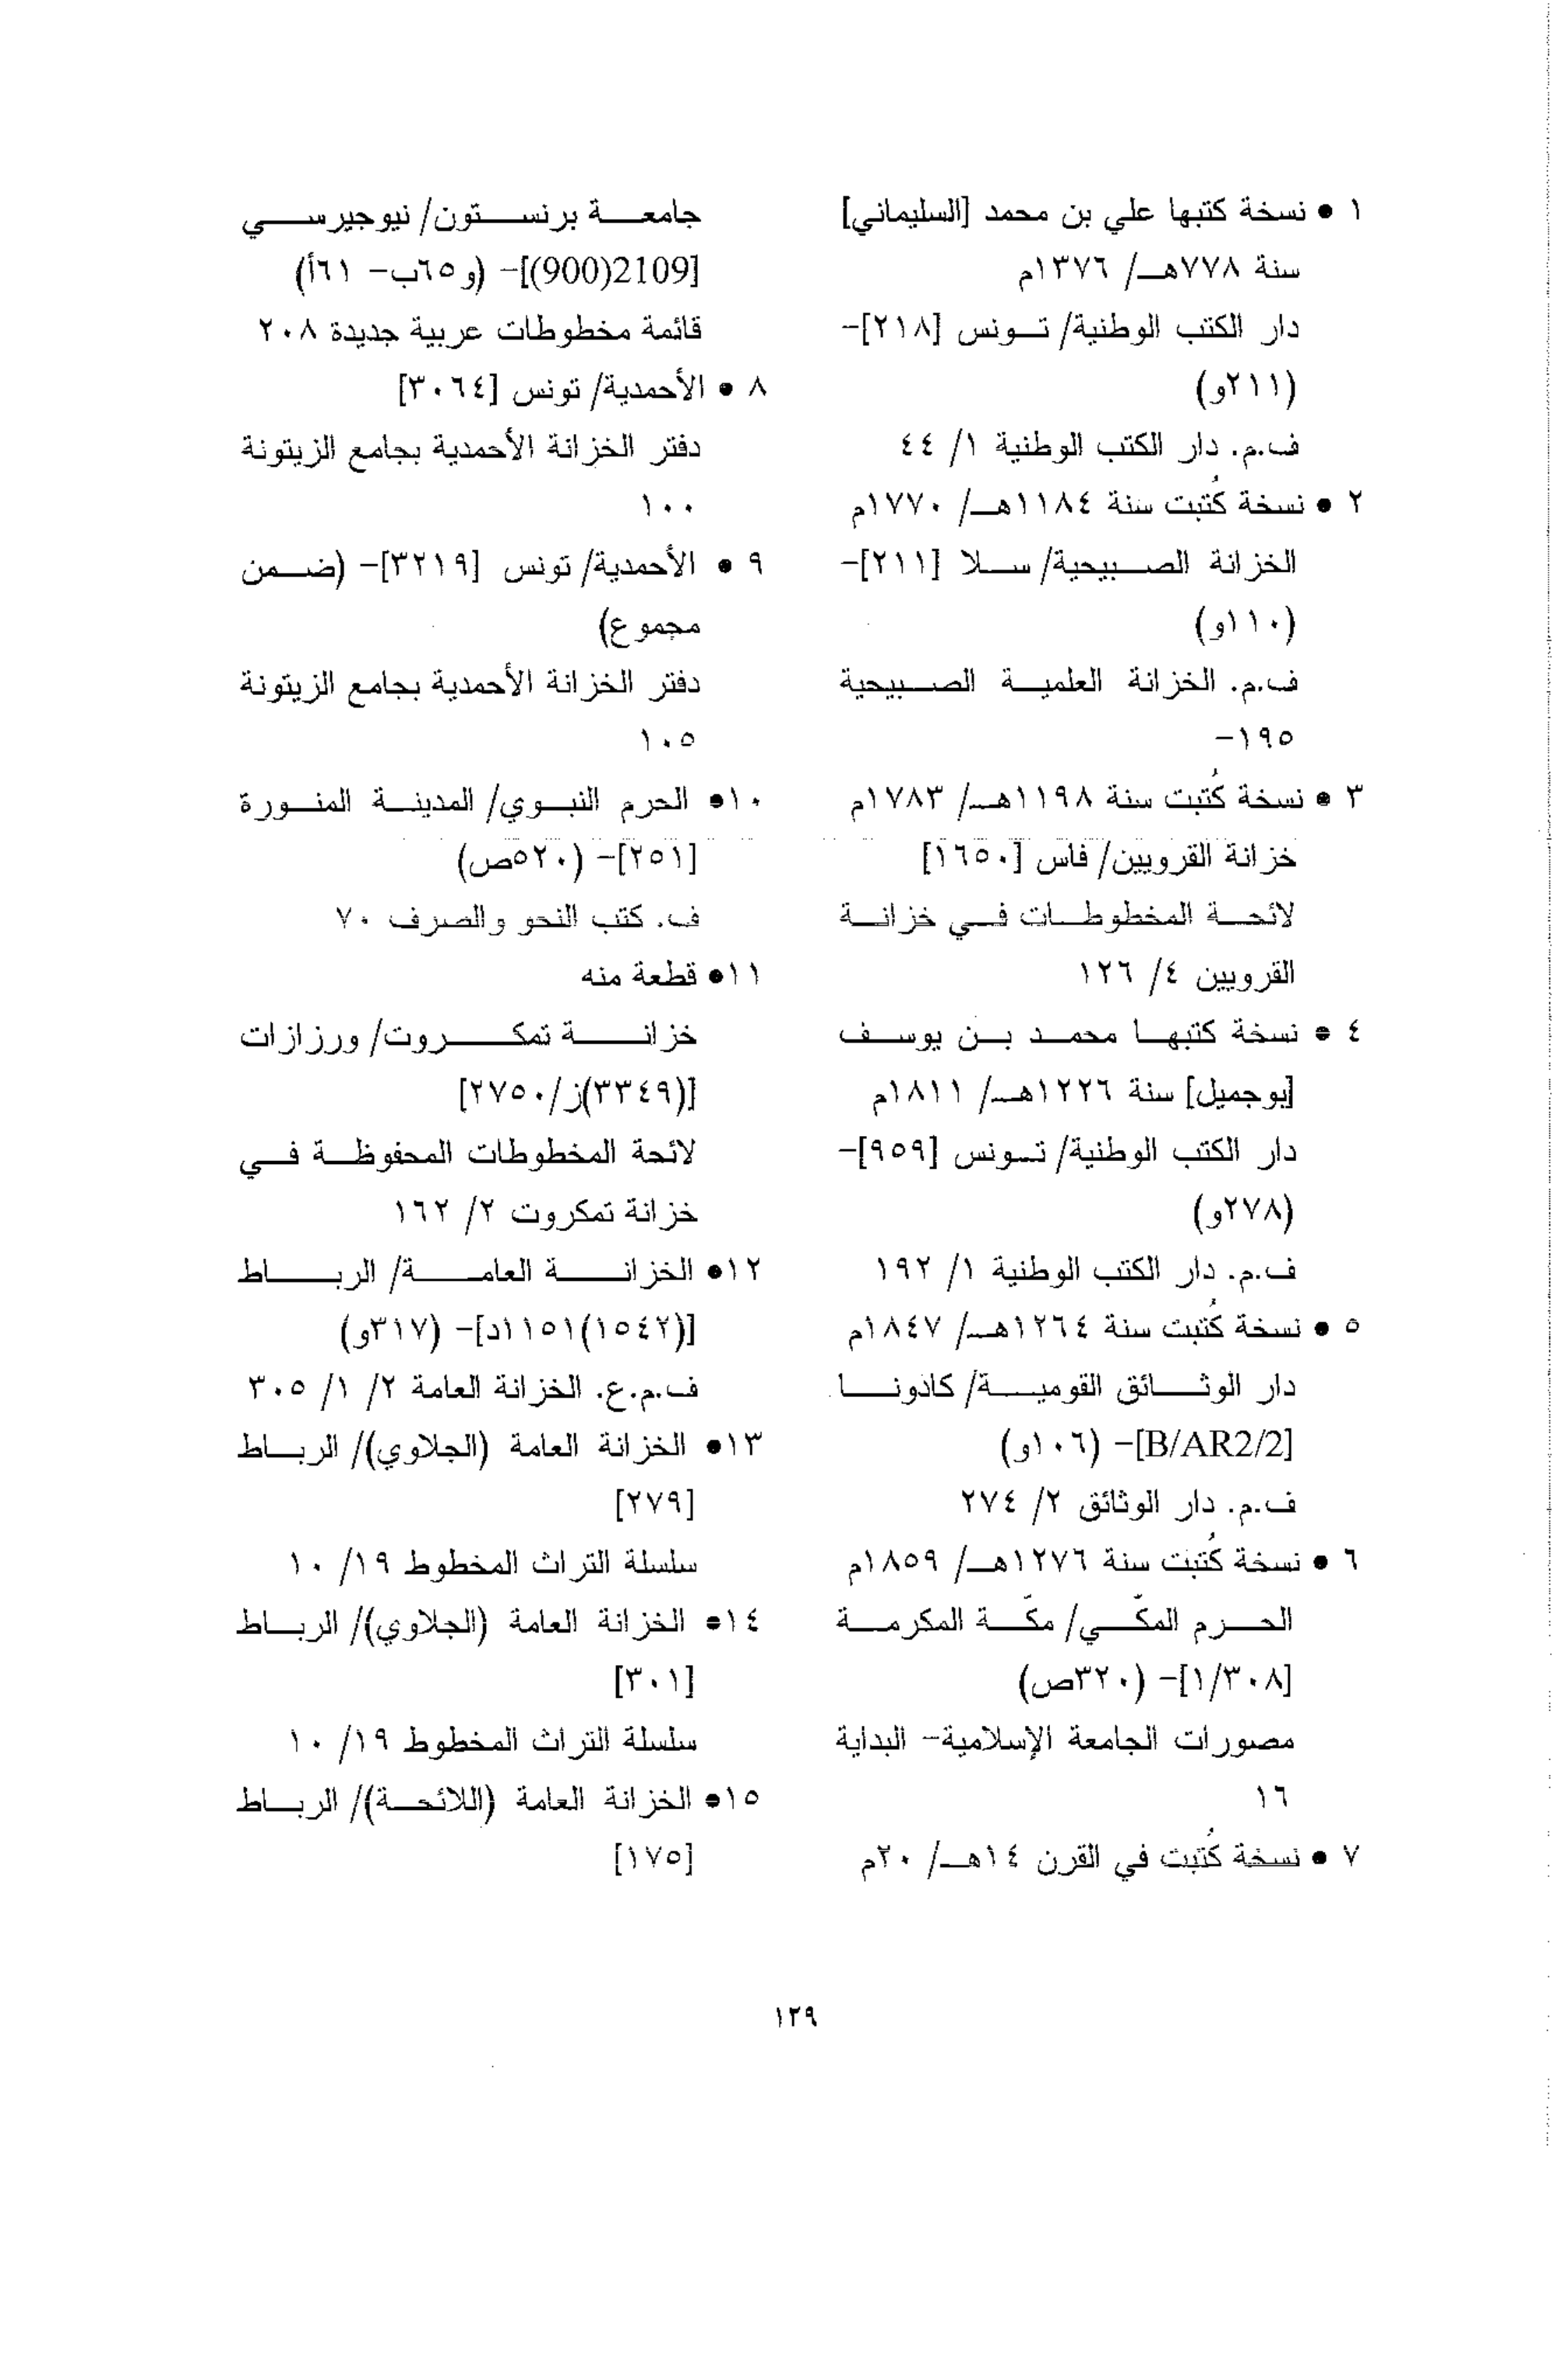 ١ • نسخة كتبها علي بن محمد [السليماني]
سنة ٧٧٨هـ/ ١٣٧٦م
دار الكتب الوطنية/ تونس [٢١٨]-
(٢١١و)
ف.م. دار الكتب الوطنية ١/ ٤٤
٢ • نسخة كُتبت سنة ١١٨٤هـ/ ١٧٧٠م
الخزانة الصبيحية/ سلا [٢١١]-
(١١٠و)
ف.م. الخزانة العلمية الصبيحية
١٩٥-
٣ • نسخة كُتبت سنة ١١٩٨هـ/ ١٧٨٣م
خزانة القرويين/ فاس [١٦٥٠]
لائحة المخطوطات في خزانة
القرويين ٤/ ١٢٦
٤ • نسخة كتبها محمد بن يوسف
[بوجميل] سنة ١٢٢٦هـ/ ١٨١١م
دار الكتب الوطنية/ تونس [٩٥٩]-
(٢٧٨و)
ف.م. دار الكتب الوطنية ١/ ١٩٢
٥ • نسخة كُتبت سنة ١٢٦٤هـ/ ١٨٤٧م
دار الوثائق القومية/ كادونا
[B/AR2/2]- (١٠٦و)
ف.م. دار الوثائق ٢/ ٢٧٤
٦ • نسخة كُتبت سنة ١٢٧٦هـ/ ١٨٥٩م
الحرم المكّي/ مكّة المكرمة
[١/٣٠٨]- (٣٢٠ص)
مصورات الجامعة الإسلامية- البداية
١٦
٧ • نسخة كُتبت في القرن ١٤هـ/ ٢٠م
جامعة برنستون/ نيوجيرسي
[2109(900)]- (و٦٥ب- ٦١أ)
قائمة مخطوطات عربية جديدة ٢٠٨
٨ • الأحمدية/ تونس [٣٠٦٤]
دفتر الخزانة الأحمدية بجامع الزيتونة
١٠٠
٩ • الأحمدية/ تونس [٣٢١٩]- (ضمن
مجموع)
دفتر الخزانة الأحمدية بجامع الزيتونة
١٠٥
١٠• الحرم النبوي/ المدينة المنورة
[٢٥١]- (٥٢٠ص)
ف. كتب النحو والصرف ٧٠
١١• قطعة منه
خزانة تمكروت/ ورزازات
[(٣٣٤٩)ز/٢٧٥٠]
لائحة المخطوطات المحفوظة في
خزانة تمكروت ٢/ ١٦٢
١٢• الخزانة العامة/ الرباط
[(١٥٤٢)١١٥١د]- (٣١٧و)
ف.م.ع. الخزانة العامة ٢/ ١/ ٣٠٥
١٣• الخزانة العامة (الجلاوي)/ الرباط
[٢٧٩]
سلسلة التراث المخطوط ١٩/ ١٠
١٤• الخزانة العامة (الجلاوي)/ الرباط
[٣٠١]
سلسلة التراث المخطوط ١٩/ ١٠
١٥• الخزانة العامة (اللائحة)/ الرباط
[١٧٥]
١٢٩